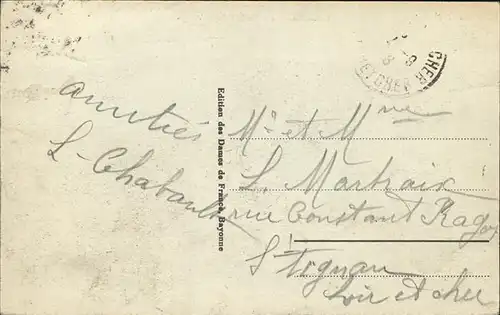 Amitiés
L. Chabault
Edition des Dames de France, Bayonne
Mr et Mme
L.
rue Constant Ragot
St Aignan
Loir et cher
CHER
ET CHER